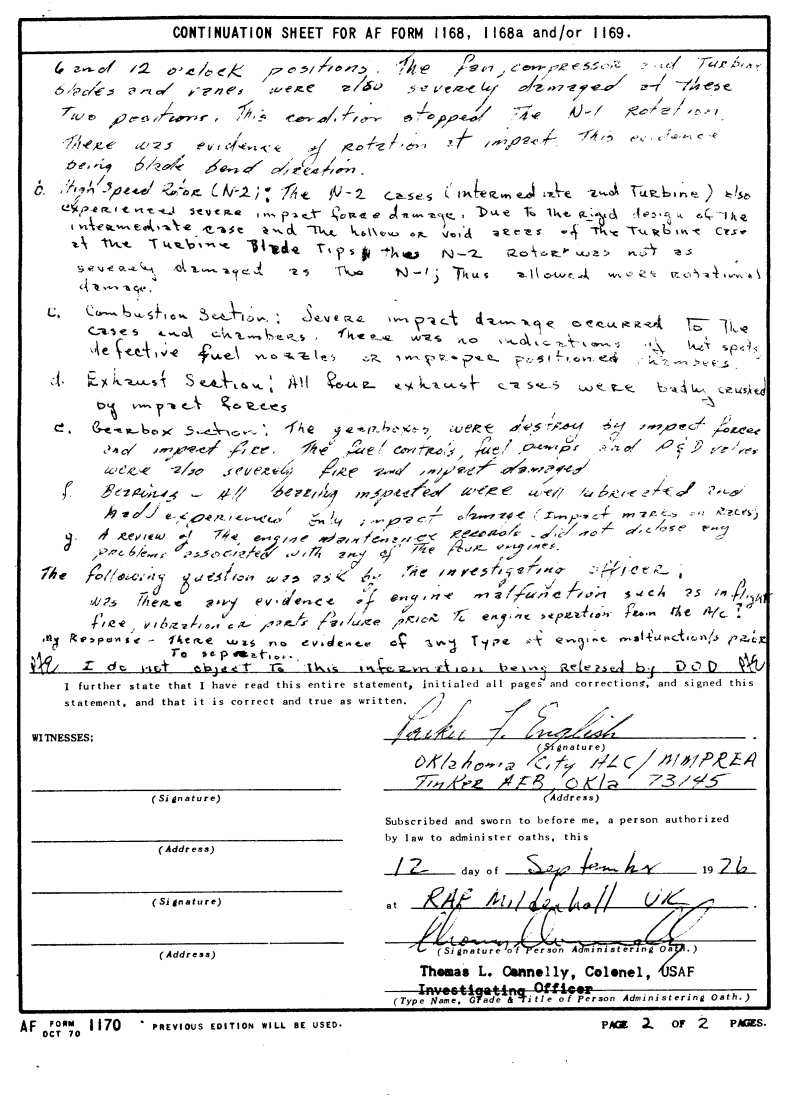 CONTINUATION SHEET FOR AF FORM 1168, 1168a and/or 1169.
6 and 12 o'clock positions. The fan, compressor and Turbine
blades and vanes were also severely damaged at These
Two positions. This condition stopped The N-1 Rotation.
There was evidence of Rotation at impact. This evidence
being blade bend direction.
b. High Speed Rotor (N-2); The N-2 cases (intermediate and Turbine) also
experienced severe impact force damage. Due to the rigid design of the
intermediate case and the hollow or void areas of the Turbine case
at the Turbine Blade Tips, the N-2 Rotor was not as
severely damaged as The N-1; Thus allowed more rotational
damage.
c. Combustion Section; Severe impact damage occurred To The
cases and chambers. There was no indications of hot spots
defective fuel nozzles or improper positioned chambers.
d. Exhaust Section; All four exhaust cases were badly crushed
by impact forces
e. Gearbox Section; The gearboxes were destroy by impact forces
and impact fire. The fuel controls, fuel pumps and P&D valves
were also severely fire and impact damaged
f. Bearings - All bearing inspected were well lubricated and
had experienced only impact damage (Impact marks on Races)
g. A review of The engine maintenance records did not diclose any
problems associated with any of The four engines.
The following question was ask by The investigating officer;
was There any evidence of engine malfunction such as inflight
fire, vibration or parts failure prior To engine sepration from the A/C?
My Response - There was no evidence of any Type of engine malfunction/s prior
To sepration.
I do not object To This information being Released by DOD
I further state that I have read this entire statement, initialed all pages and corrections, and signed this
statement, and that it is correct and true as written.
Parker F. English
WITNESSES:
(Signature)
Oklahoma City ALC/MMPREA
Tinker AFB, Okla 73145
(Signature)
(Address)
Subscribed and sworn to before me, a person authorized
by law to administer oaths, this
(Address)
12 day of September 1976
(Signature)
at RAF Mildenhall UK
(Address)
(Signature of Person Administering Oath.)
Thomas L. Connelly, Colonel, USAF
Investigating Officer
(Type Name, Grade & Title of Person Administering Oath.)
AF FORM OCT 70 1170 PREVIOUS EDITION WILL BE USED.
PAGE 2 OF 2 PAGES.